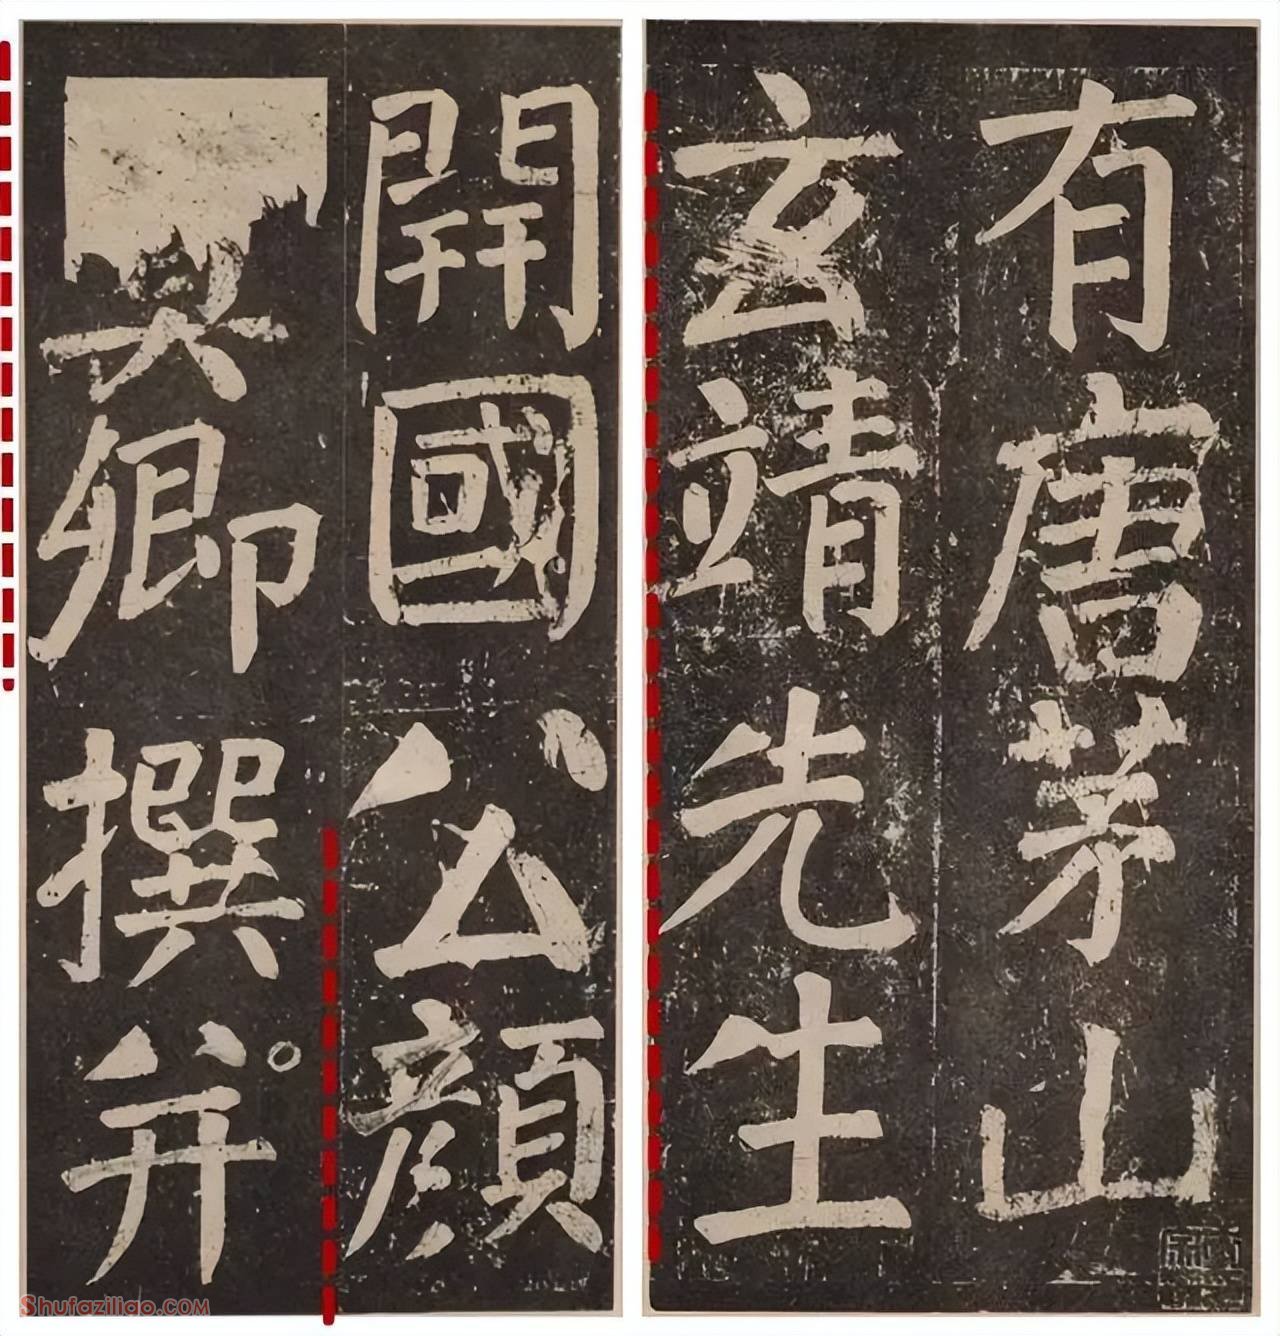 有唐茅山
玄靖先生
開國公顏
真卿撰并
Shufaziliao.COM